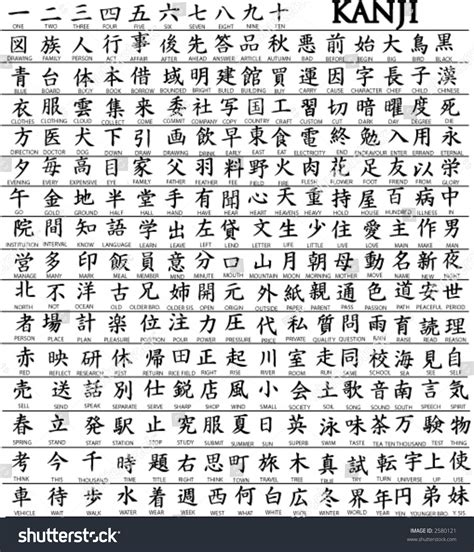 一 二 三 四 五 六 七 八 九 十 KANJI
ONE TWO THREE FOUR FIVE SIX SEVEN EIGHT NINE TEN
図 族 人 行 事 後 先 答 品 秋 悪 前 始 大 鳥 黒
DRAWING FAMILY PERSON ACT AFFAIR AFTER AHEAD ANSWER ARTICLE AUTUMN BAD BEFORE BEGIN BIG BIRD BLACK
青 台 体 本 借 域 明 建 館 買 運 因 字 長 子 漢
BLUE BOARD BODY BOOK BORROW BRIGHT BUILD BUILDING BUY CARRY CAUSE CHARACTER CHIEF CHILD CHINESE
衣 服 雲 集 来 委 社 写 国 工 習 切 暗 曜 度 死
CLOTHES CLOTHING CLOUD COLLECT COME COMMIT COMPANY COPY COUNTRY CRAFT CUSTOM CUT DARK DAY DEGREE DIE
方 医 犬 下 引 画 飲 早 東 食 電 終 勉 入 用 永
DIRECTION DOCTOR DOG DOWN DRAW DRAWING DRINK EARLY EAST EAT ELECTRICITY END ENDEAVOUR ENTER ERRAND ETERNAL
夕 毎 高 目 家 父 羽 料 野 火 肉 花 足 友 以 学
EVENING EVERY EXPENSIVE EYE FAMILY FATHER FEATHER FEE FIELD FIRE FLESH FLOWER FOOT FRIEND
午 金 地 半 堂 手 有 開 心 天 重 持 屋 百 病 中
GO GOLD GROUND HALF HALL HAND HAVE HEART HEAVENS HEAVY HOLD HOUSE HUNDRED ILLNESS IN
院 間 知 語 学 出 左 貸 文 生 少 住 愛 主 作 男
INSTITUTION INTERVAL KNOW LANGUAGE LEARN LEAVE LEFT LEND LETTER LIFE LITTLE LIVE LOVE MAIN MAKE MAN
多 印 飯 員 意 分 口 山 月 朝 母 動 名 新 夜
MANAGE MANY MARK MEAL MEMBER MIND MINUTE MOUTH MOUNTAIN MOON MORNING MOTHER MOVE NAME NEW NIGHT
北 不 洋 古 兄 姉 開 元 外 紙 親 通 色 道 安 世
NORTH NOT OCEAN OLD OLDER BRO. OLDER SIS. OPEN ORIGIN OUTSIDE PAPER PARENT PASS PASSION PATH PEACEFUL PERIOD
者 場 計 楽 位 注 力 圧 代 私 質 問 雨 育 読 理
PERSON PLACE PLAN PLEASURE POSITION POUR POWER PRESSURE PRICE PRIVATE QUALITY QUESTION RAIN RAISE READ REASON
赤 映 研 帰 田 正 起 川 室 走 同 校 海 見 自
RED REFLECT RESEARCH RETURN RICE FIELD RIGHT RISE RIVER ROOM RUN SAME SCHOOL SEA SEE SELF
売 送 話 仕 鋭 店 風 小 社 歌 音 南 言 気
SELL SEND SPEAK SERVE SHARP SHOP SMALL SOCIETY SONG SOUND SOUTH SPEECH SPIRIT
春 立 発 駅 止 究 服 夏 日 英 泳 味 茶 万 験 物
SPRING STAND START STATION STOP STUDY SUMMER SUN SWIM TASTE TEA TEN THOUSAND TEST THING
考 今 千 時 題 右 思 町 町 旅 木 真 試 転 宇 上 使
THINK THIS THOUSAND TIME TITLE TOWN TRAVEL TREE TRUE TRY TURN UP USE
車 待 歩 水 着 週 西 何 白 女 世 界 年 円 弟 妹
VEHICLE WAIT WALK WATER WEAR WEEK WEST WHAT WHITE WOMAN WORLD YEAR YEN YOUNGER BRO.
shutterstock
IMAGE ID: 2580121
www.shutterstock.com